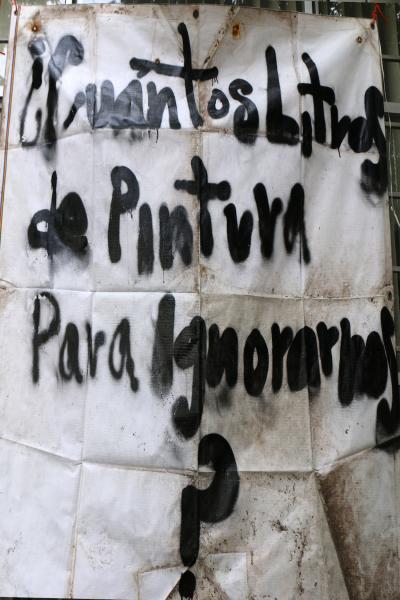 ¿Cuántos Litros
de Pintura
Para Ignorarnos
?